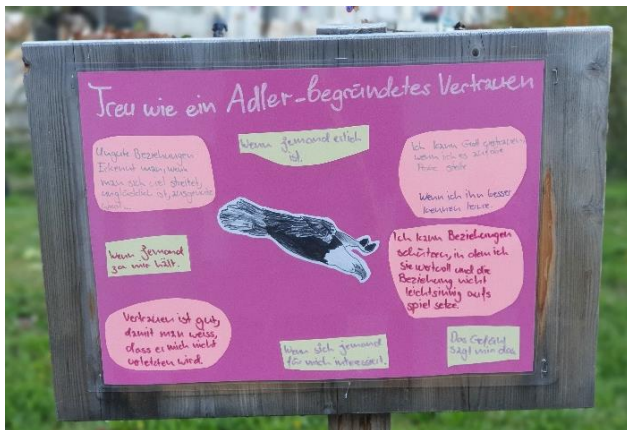 Treu wie ein Adler-begründetes Vertrauen
Ungute Beziehungen
Erkennt man, wenn
man sich viel streitet,
unglücklich ist, ausgenutzt
wird.
Wenn jemand erlich
ist.
Ich kann Gott vertrauen,
wenn ich es
wenn ich ihn besser
kennen lerne.
Wenn jemand
zu mir hält.
Ich kann Beziehungen
schützen, in dem ich
sie wertvoll und die
Beziehung nicht
leichtsinnig aufs
spiel setze.
Vertrauen ist gut,
damit man weiss,
dass er mich nicht
verletzten wird.
Wenn sich jemand
für mich interessiert.
Das Gefühl
sagt mir das.